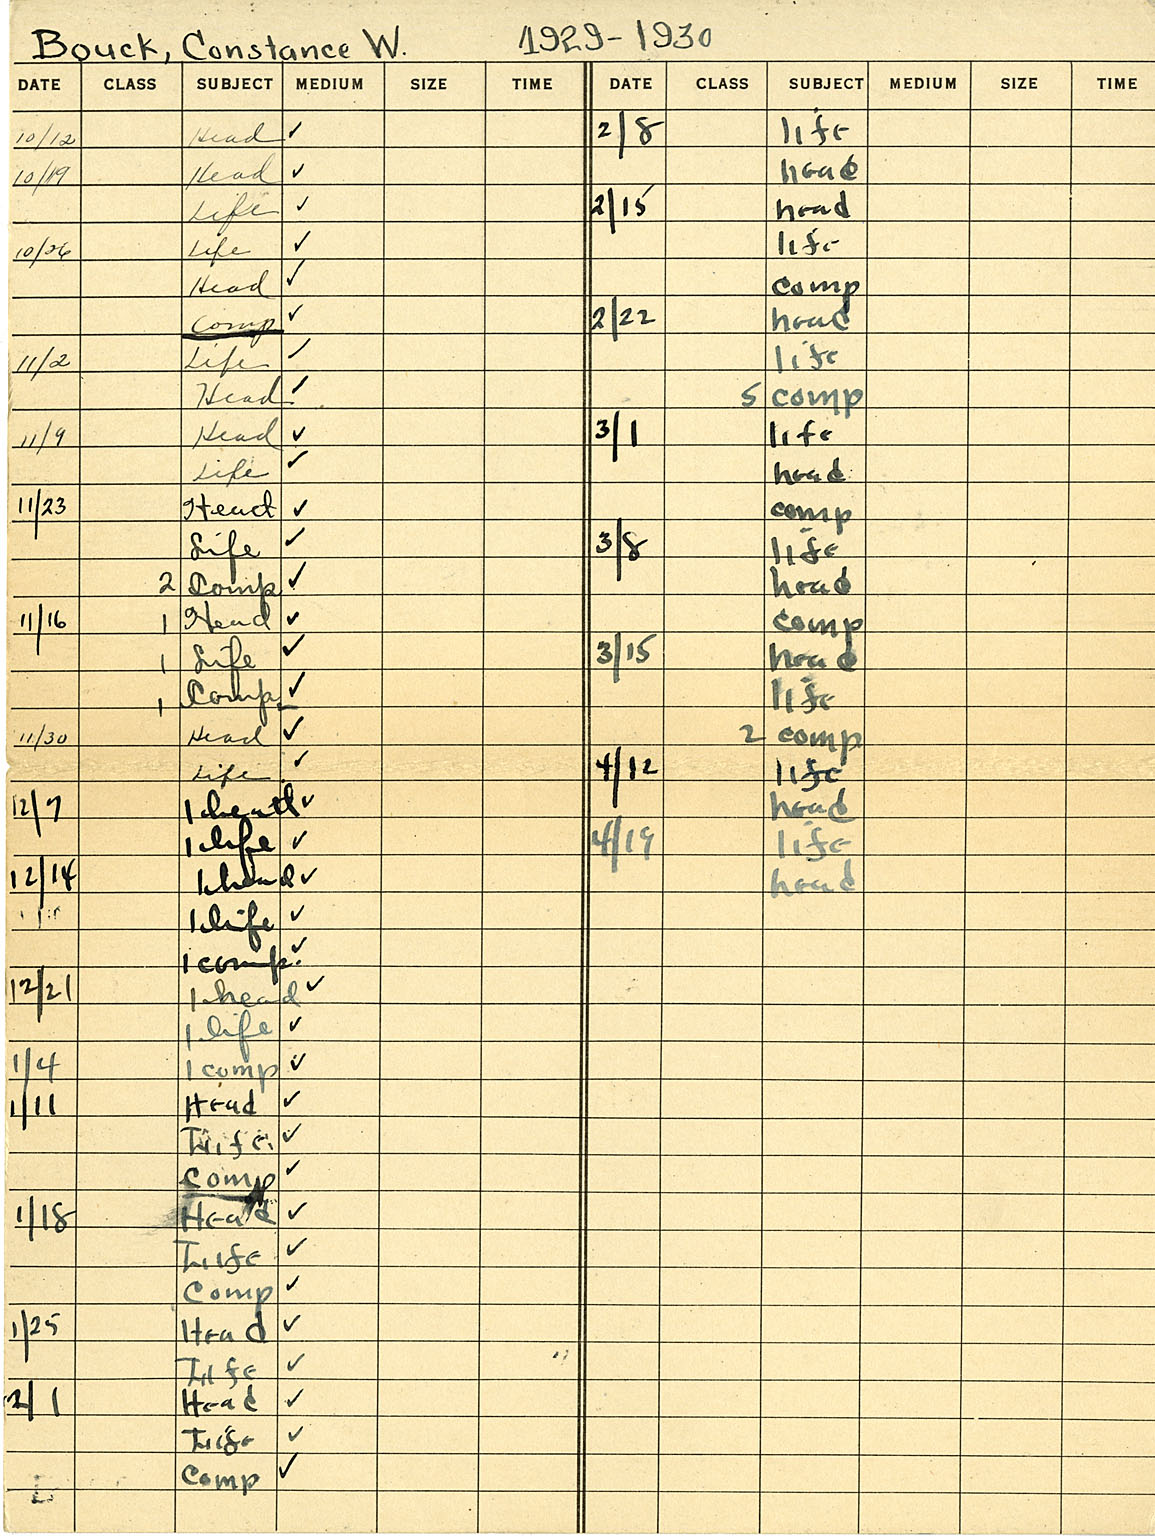 Bouck, Constance W. 1929-1930
DATE CLASS SUBJECT MEDIUM SIZE TIME DATE CLASS SUBJECT MEDIUM SIZE TIME
10/12 Head ✓
10/19 Head ✓
Life ✓
10/26 Life ✓
Head ✓
Comp ✓
11/2 Life ✓
Head ✓
11/9 Head ✓
Life ✓
11/23 Head ✓
Life ✓
2 Comp ✓
11/16 1 Head ✓
1 Life ✓
1 Comp ✓
11/30 Head ✓
Life ✓
12/7 1 head ✓
1 life ✓
12/14 1 head ✓
1 life ✓
1 comp. ✓
12/21 1 head ✓
1 life ✓
1/4 1 comp ✓
1/11 Head ✓
Life ✓
Comp ✓
1/18 Head ✓
Life ✓
Comp ✓
1/25 Head ✓
Life ✓
2/1 Head ✓
Life ✓
Comp ✓
2/8 life
head
2/15 head
life
comp
2/22 head
life
5 comp
3/1 life
head
comp
3/8 life
head
comp
3/15 head
life
2 comp
4/12 life
head
4/19 life
head